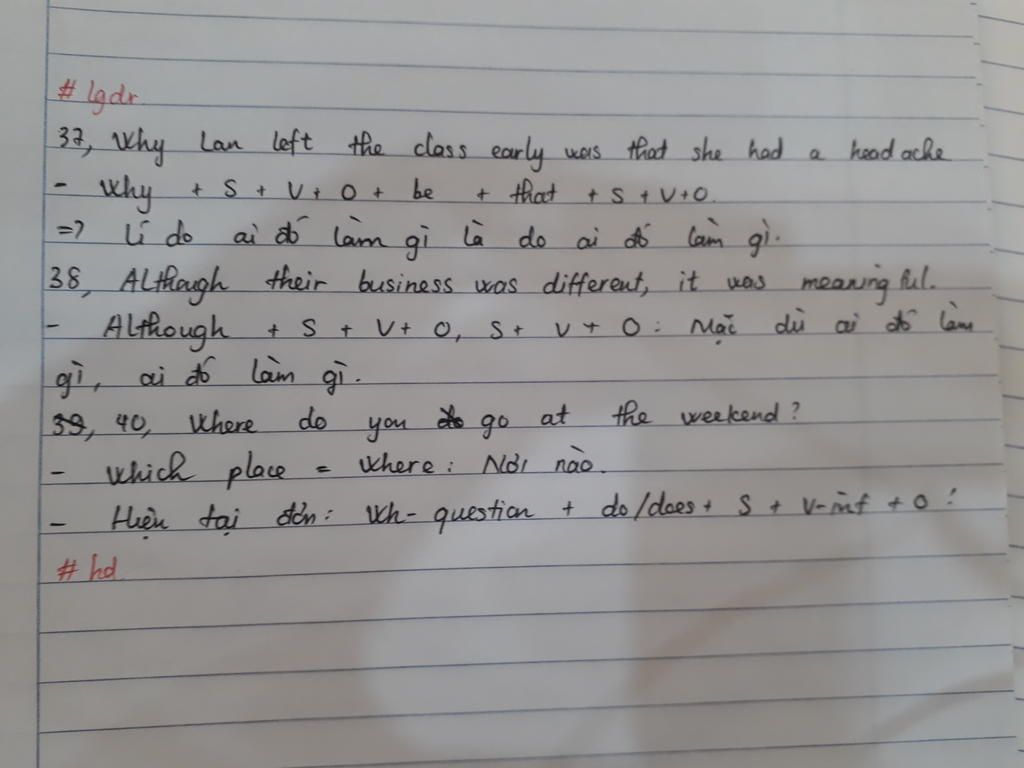 # lgdr
37, Why Lan left the class early was that she had a headache
- Why + S + V + O + be + that + S + V + O.
=> Lí do ai đó làm gì là do ai đó làm gì.
38, Although their business was different, it was meaningful.
- Although + S + V + O, S + V + O : Mặc dù ai đó làm
gì, ai đó làm gì.
39, 40, Where do you go at the weekend?
- Which place = Where : Nơi nào.
- Hiện tại đơn: Wh- question + do/does + S + V-inf + O ?
# hd